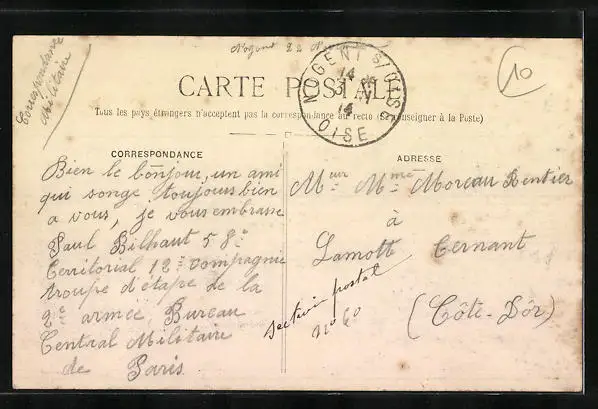 Correspondance
Militaire
Nogent 22 Novembre
10
CARTE POSTALE
NOGENT S/OISE
14
31
14
OISE
Tous les pays étrangers n'acceptent pas la correspondance au recto (Se renseigner à la Poste)
CORRESPONDANCE
Bien le bonjour, un ami
qui songe toujours bien
a vous, je vous embrasse
Paul Bilhaut 58e
Territorial 12e compagnie
troupe d'étape de la
2e armée, Bureau
Central Militaire
de Paris
ADRESSE
Meur Mme Moreau Rentier
à
Lamotte Ternant
(Côte-D'ôr)
secteur postal
No 60